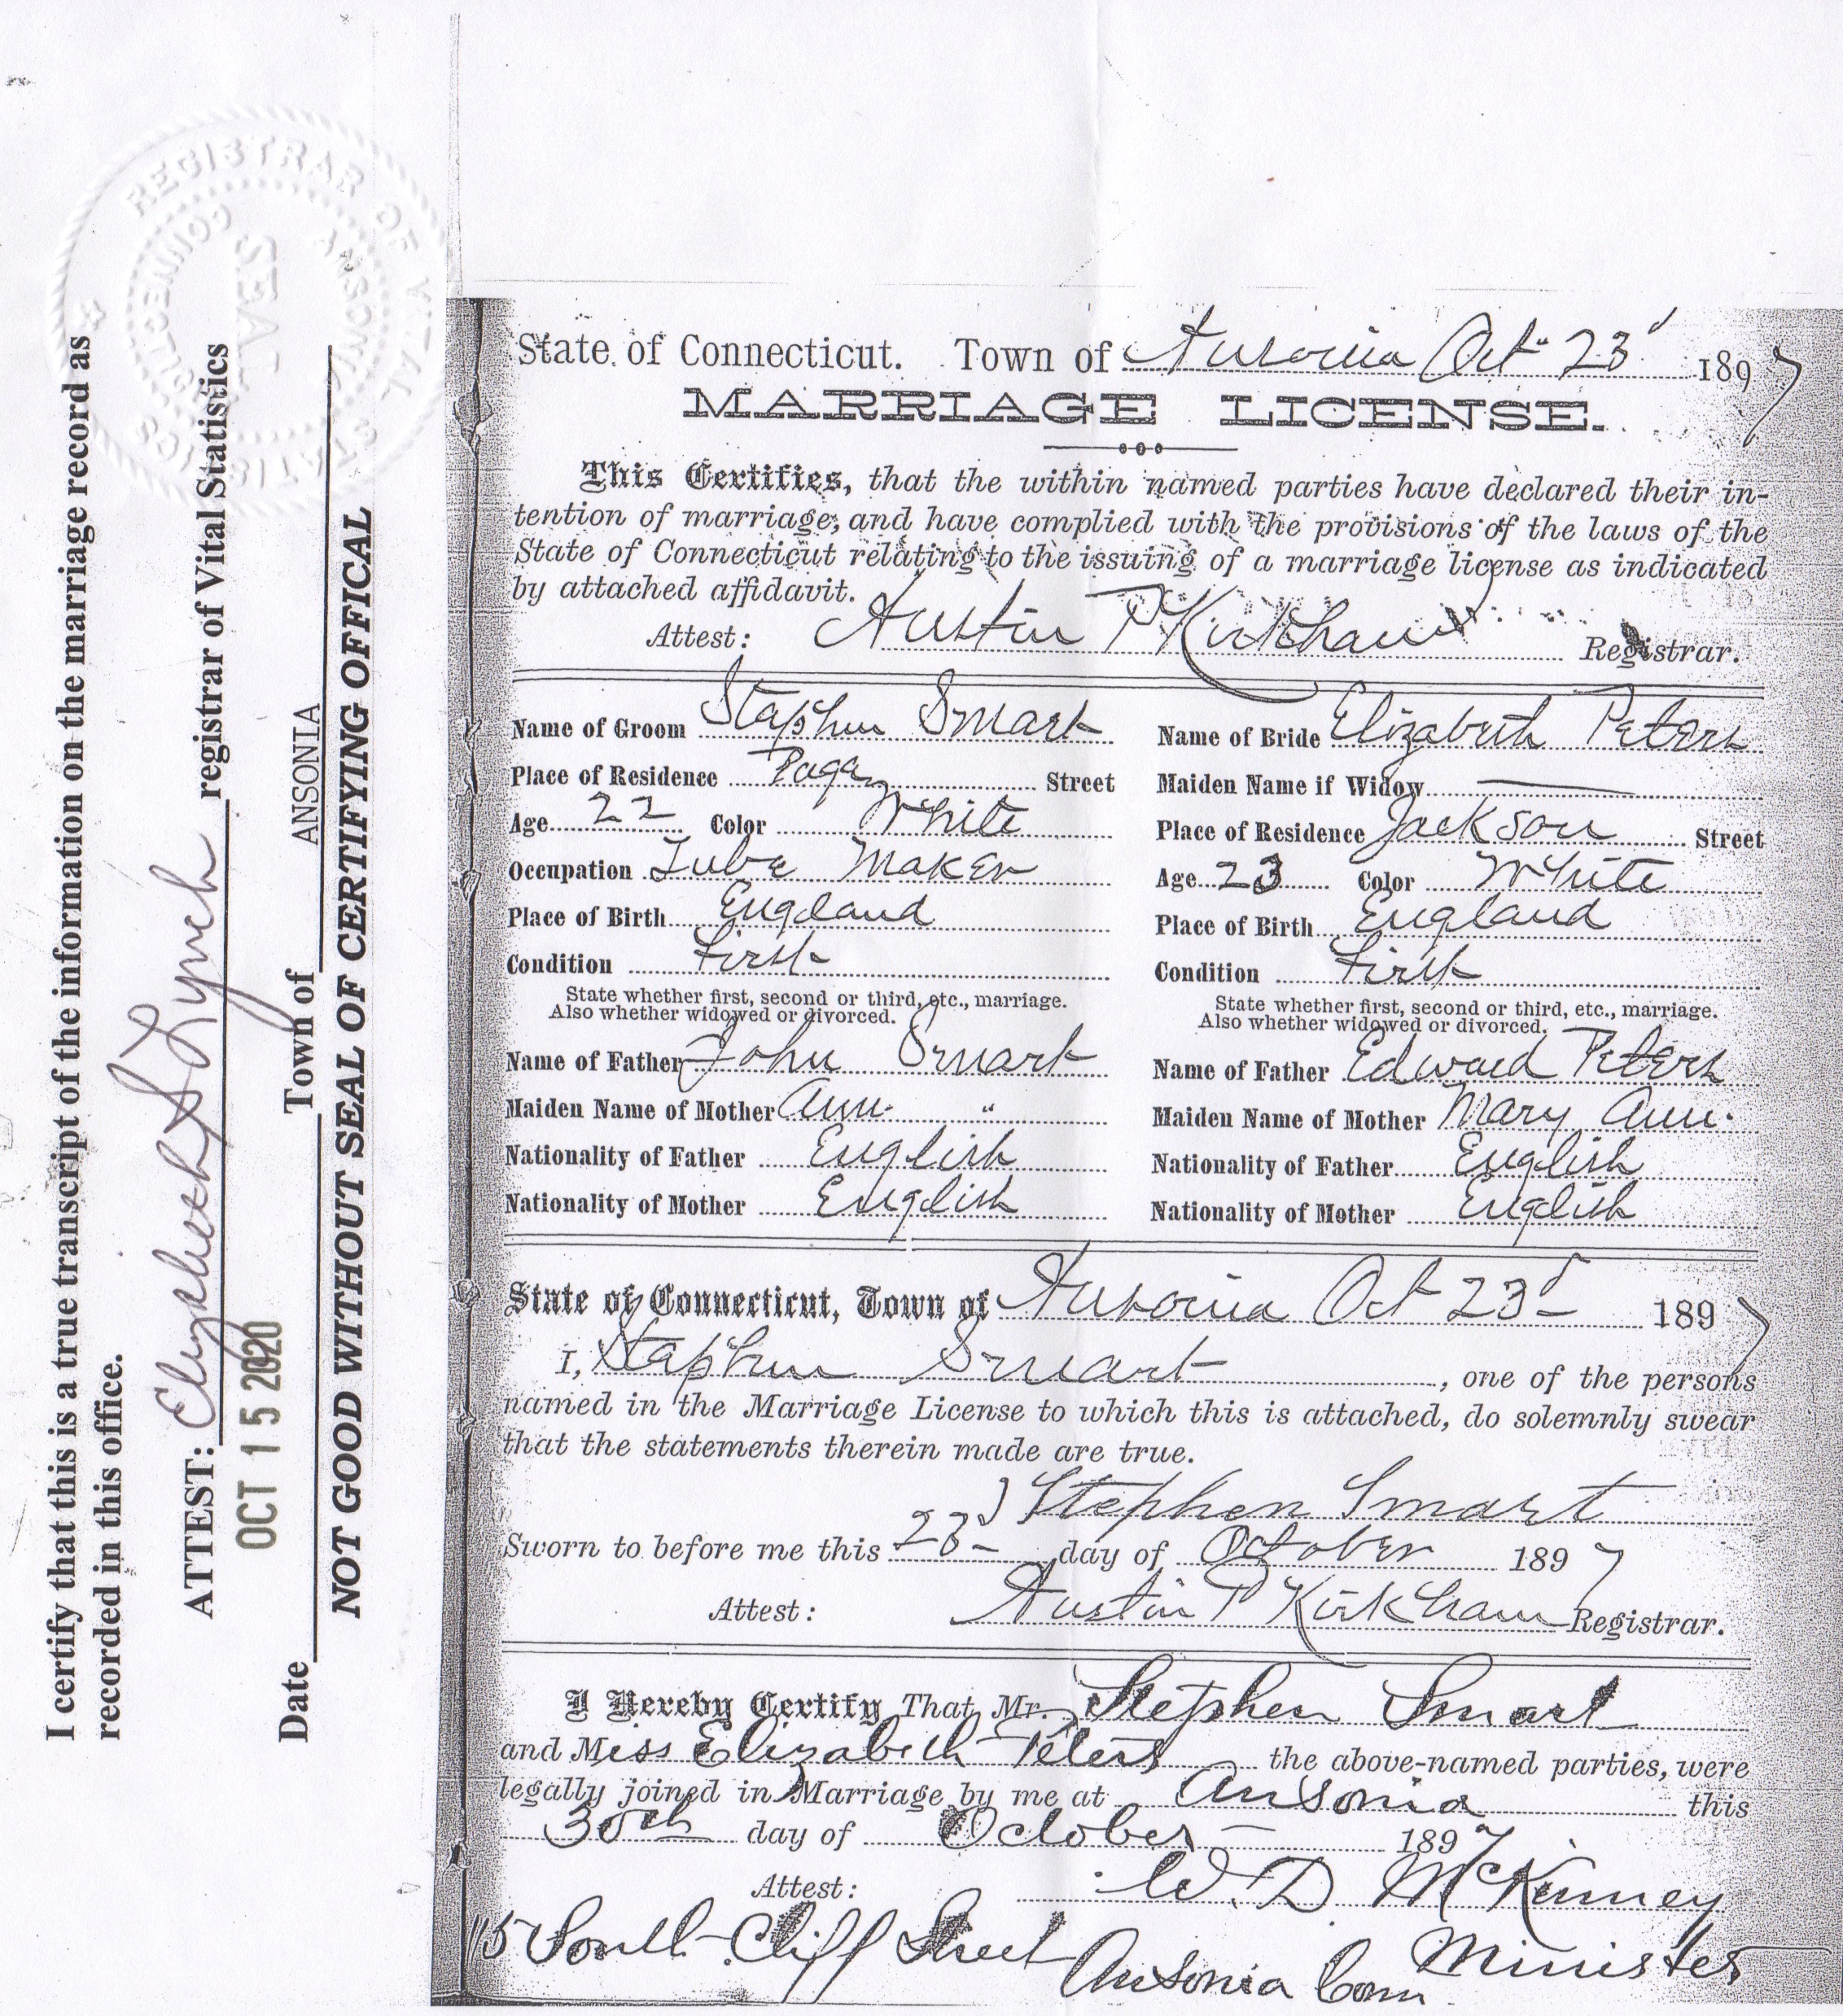 REGISTRAR OF VITAL STATISTICS
ANSONIA
CONNECTICUT
SEAL
I certify that this is a true transcript of the information on the marriage record as
recorded in this office.
ATTEST: Elizabeth S Lynch registrar of Vital Statistics
OCT 15 2020
Date Town of ANSONIA
NOT GOOD WITHOUT SEAL OF CERTIFYING OFFICAL
State of Connecticut. Town of Ansonia Oct 23d 1897
MARRIAGE LICENSE.
This Certifies, that the within named parties have declared their in-
tention of marriage, and have complied with the provisions of the laws of the
State of Connecticut relating to the issuing of a marriage license as indicated
by attached affidavit.
Attest: Austin P Kirkham Registrar.
Name of Groom Staphen Smart
Place of Residence Street
Age 22 Color White
Occupation Tube Maker
Place of Birth England
Condition First
State whether first, second or third, etc., marriage.
Also whether widowed or divorced.
Name of Father John Smart
Maiden Name of Mother Ann "
Nationality of Father English
Nationality of Mother English
Name of Bride Elizabeth Peters
Maiden Name if Widow —
Place of Residence Jackson Street
Age 23 Color White
Place of Birth England
Condition First
State whether first, second or third, etc., marriage.
Also whether widowed or divorced.
Name of Father Edward Peters
Maiden Name of Mother Mary Ann
Nationality of Father English
Nationality of Mother English
State of Connecticut, Town of Ansonia Oct 23d 1897
I, Staphen Smart, one of the persons
named in the Marriage License to which this is attached, do solemnly swear
that the statements therein made are true.
Stephen Smart
Sworn to before me this 23d day of October 1897
Attest: Austin P Kirkham Registrar.
I Hereby Certify That Mr. Stephen Smart
and Miss Elizabeth Peters the above-named parties, were
legally joined in Marriage by me at Ansonia this
30th day of October 1897
Attest: W. D. McKinney
Minister
115 South Cliff Street Ansonia Conn.